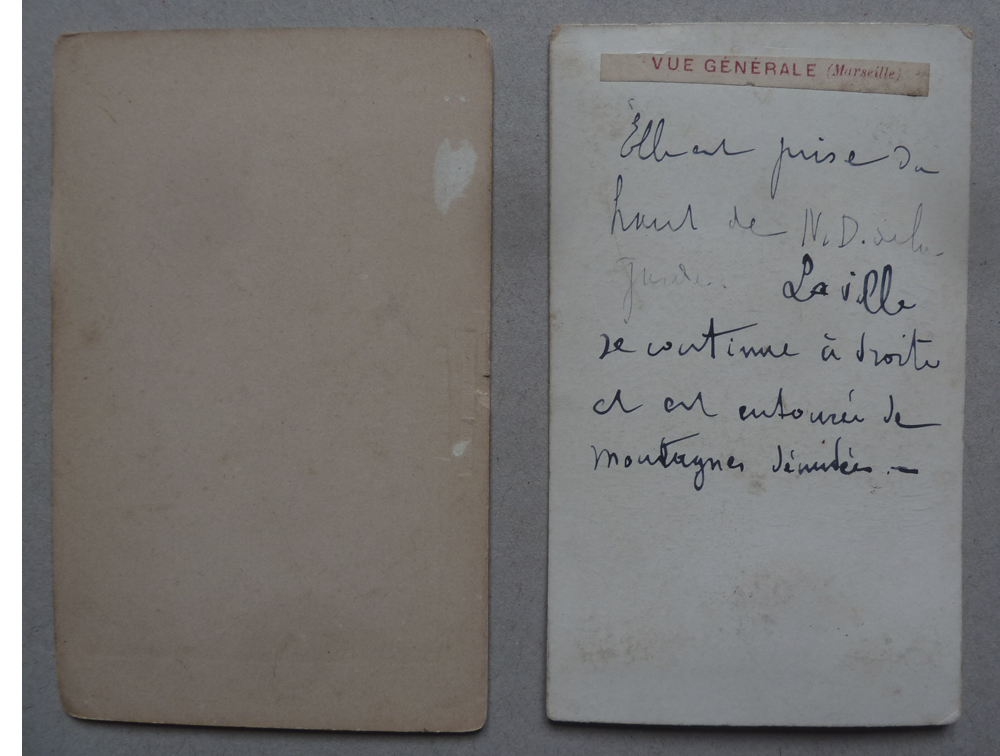 VUE GÉNÉRALE (Marseille)
Elle est prise du
haut de N. D. de la
garde. La ville
se continue à droite
et est entourée de
montagnes dénudées. —